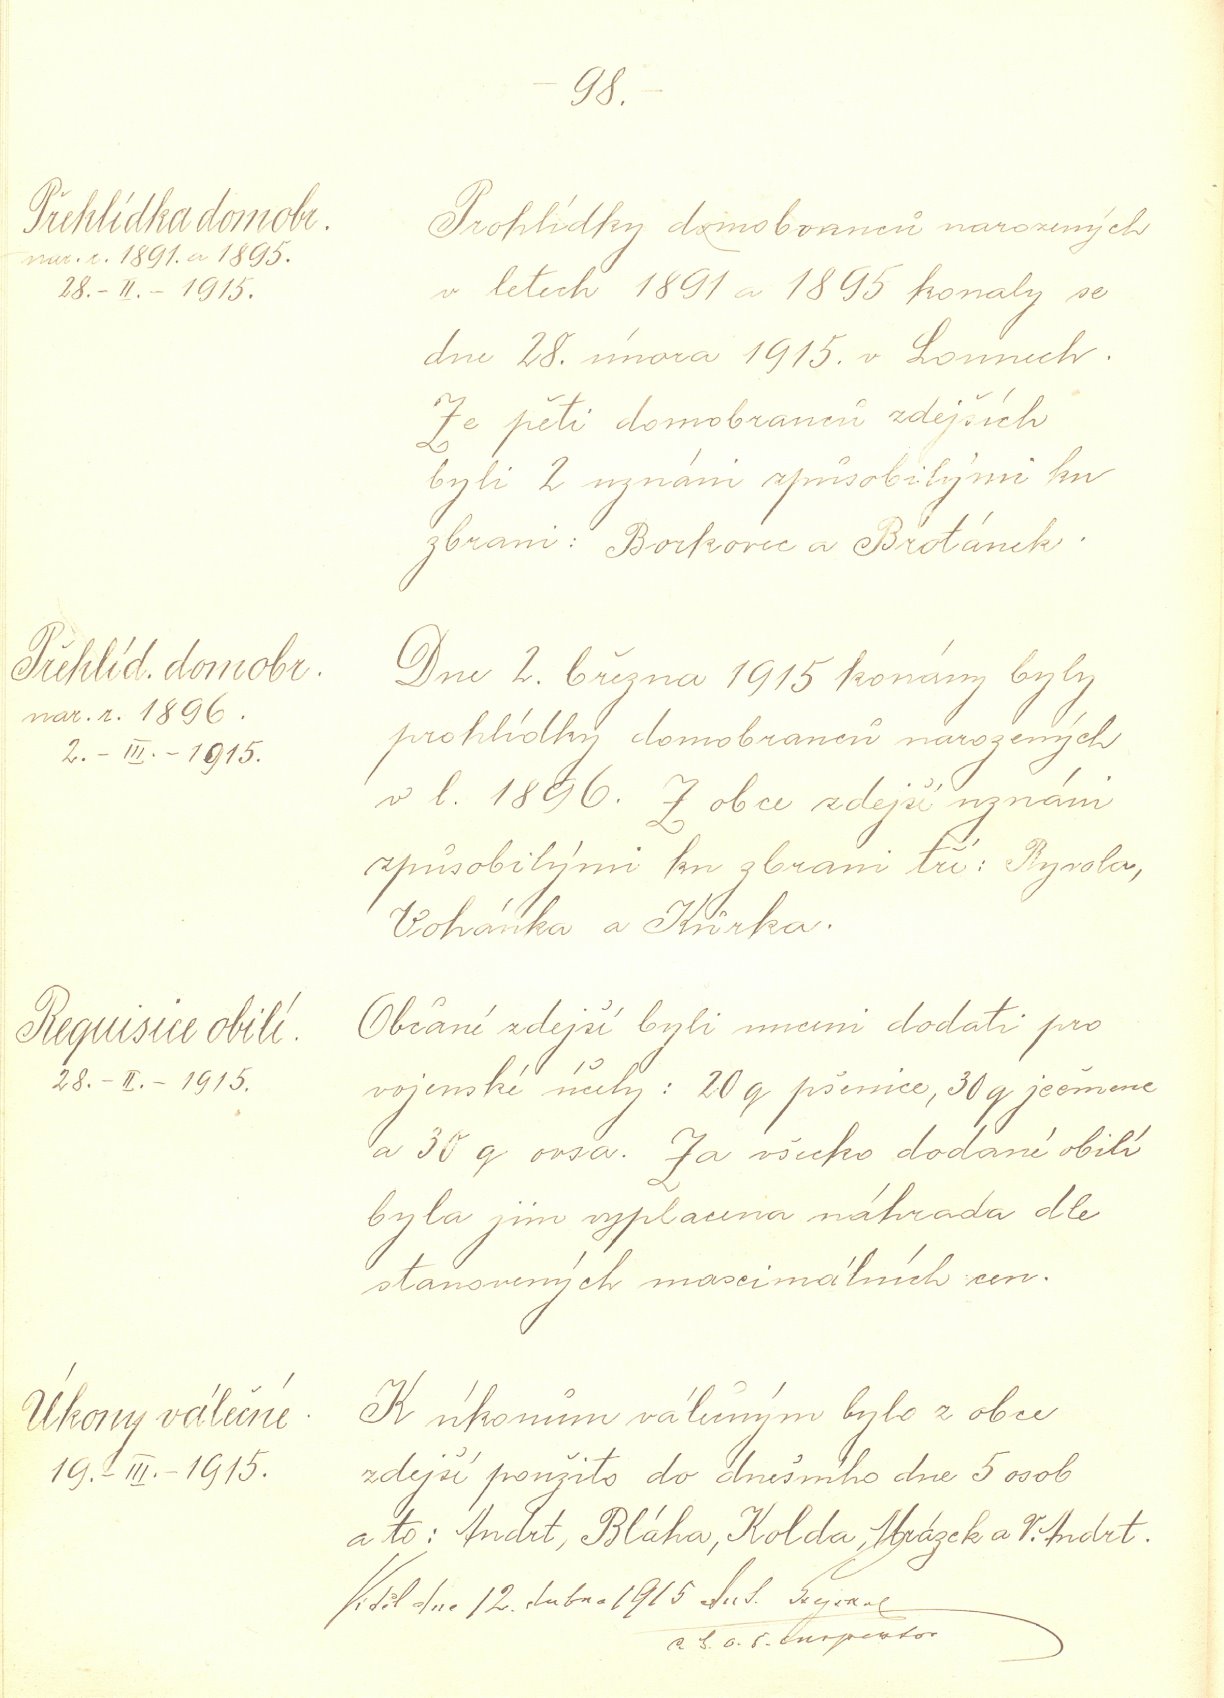 – 98. –
Přehlídka domobr.
nar. r. 1891. a 1895.
28. – II. – 1915.
Prohlídky domobranců narozených
v letech 1891 a 1895 konaly se
dne 28. února 1915. v Lounech.
Ze pěti domobranců zdejších
byli 2 uznáni způsobilými ku
zbrani: Borkovec a Brotánek.
Přehlíd. domobr.
nar. r. 1896.
2. – III. – 1915.
Dne 2. března 1915 konány byly
prohlídky domobranců narozených
v l. 1896. Z obce zdejší uznáni
způsobilými ku zbrani tří: Ryvola,
Vohánka a Knůrka.
Requisice obilí.
28. – II. – 1915.
Občané zdejší byli nuceni dodati pro
vojenské účely: 20 q pšenice, 30 q ječmene
a 30 q ovsa. Za všecko dodané obilí
byla jim vyplacena náhrada dle
stanovených maximálních cen.
Úkony válečné.
19. – III. – 1915.
K úkonům válečným bylo z obce
zdejší použito do dnešního dne 5 osob
a to: Andrt, Bláha, Kolda, Mrázek a V. Andrt.
Viděl dne 12. dubna 1915 Ant.
inspektor